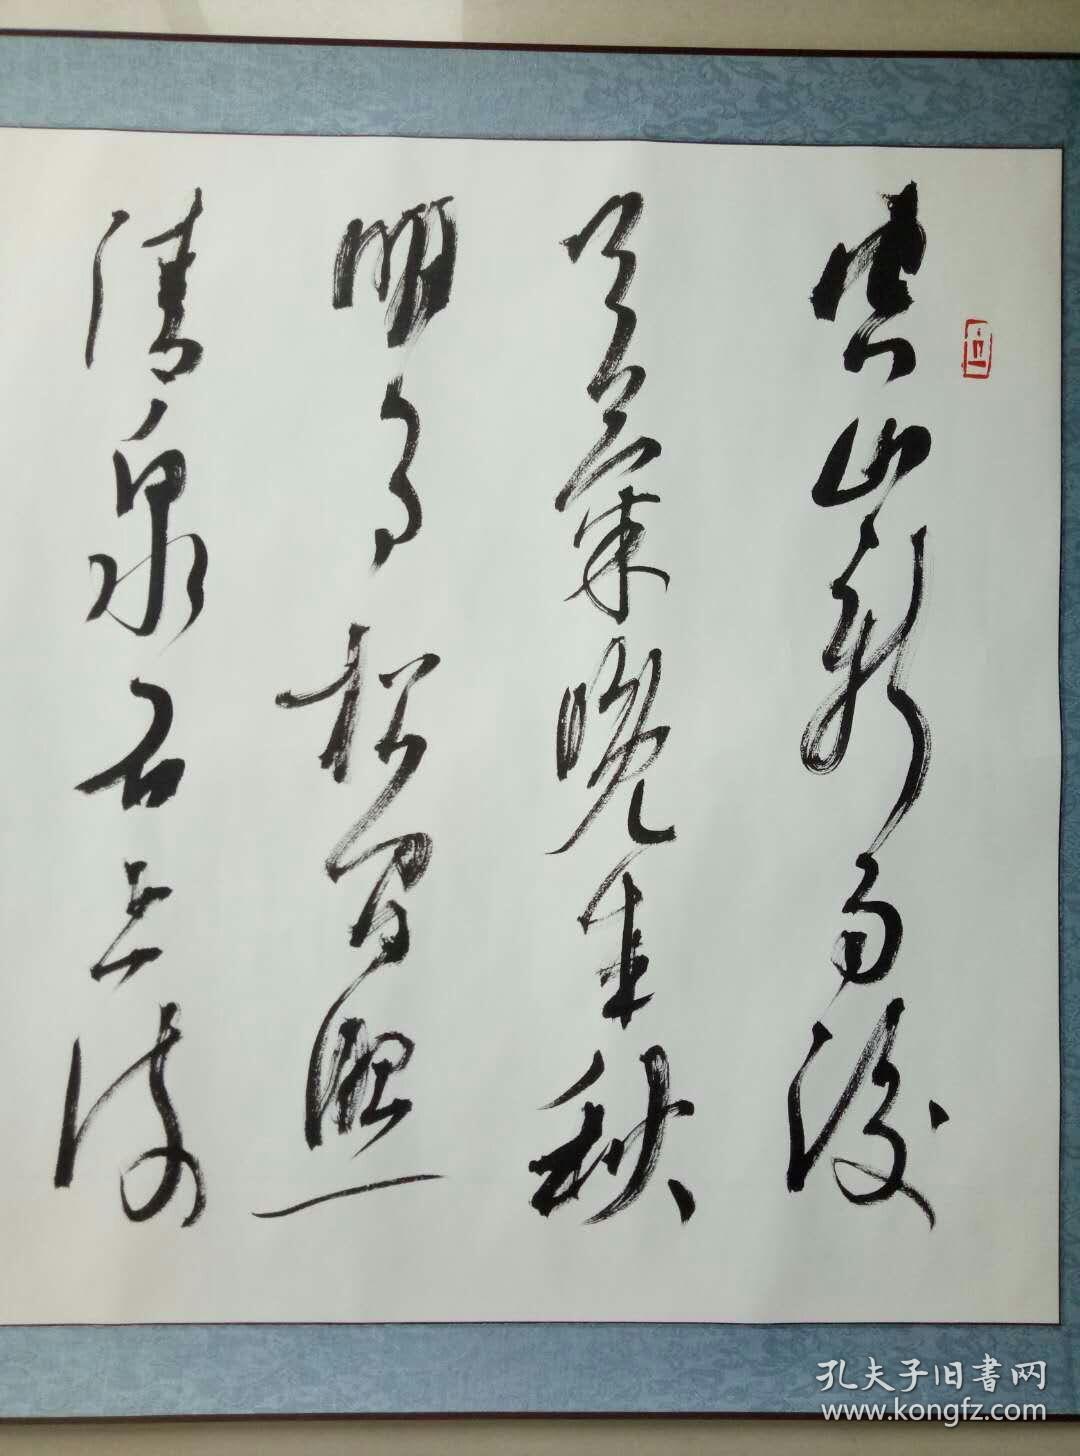 空山新雨後
天氣晚来秋
明月松間照
清泉石上流
孔夫子旧書网
www.kongfz.com